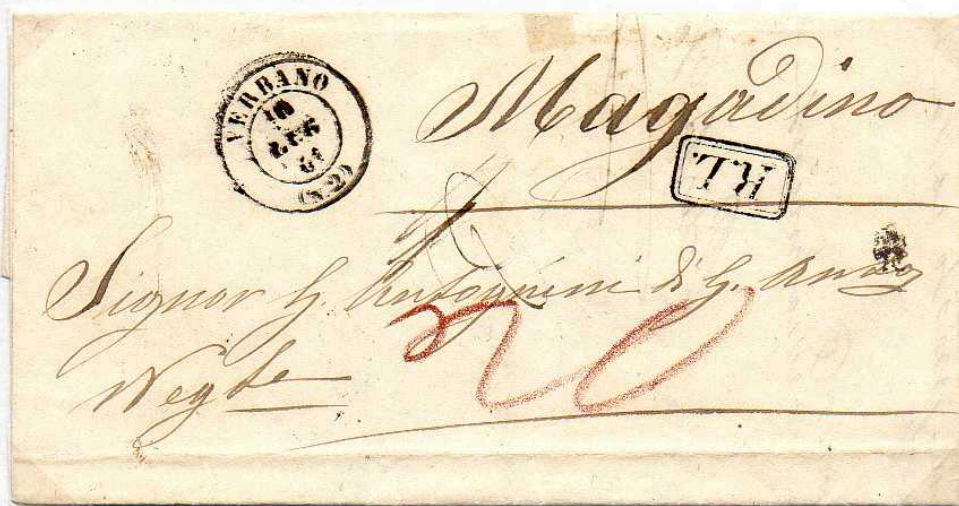 VERBANO
10
61
(N.2)
Magadino
R.L.
Signor G. Antognini di G.
Negte
20